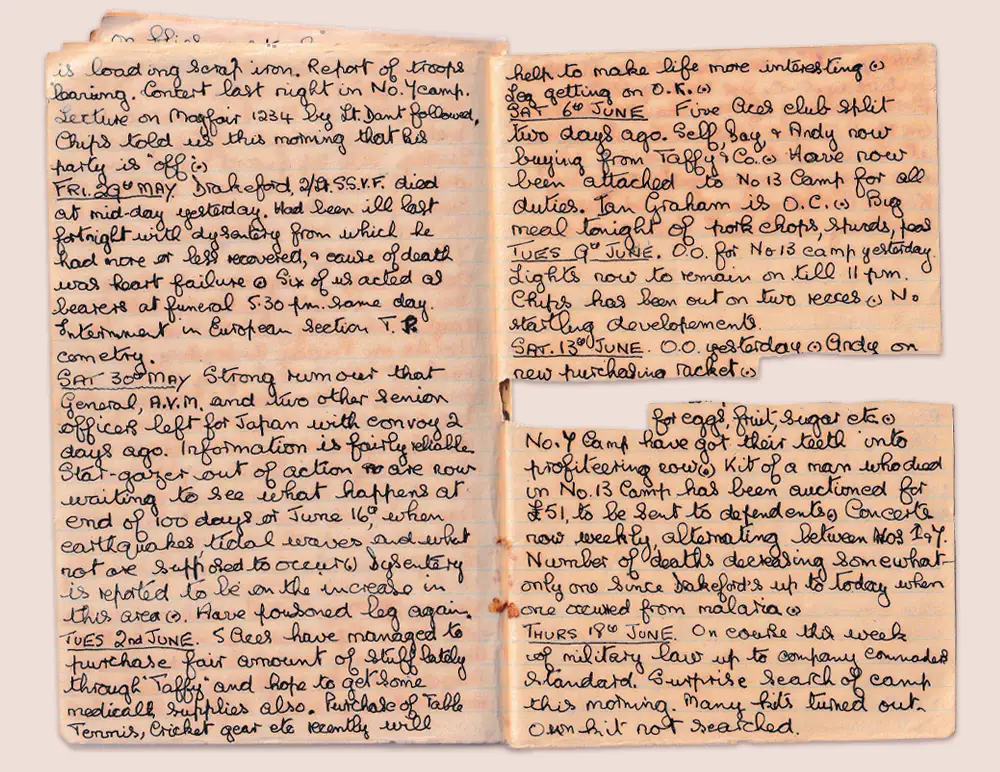 is loading scrap iron. Report of troops
leaving. Concert last night in No. 7 camp.
Lecture on Mayfair 1234 by Lt. Dant followed.
Chips told us this morning that his
party is "off".
FRI. 29th MAY Drakeford, 2/Lt. S.S.V.F. died
at mid-day yesterday. Had been ill last
fortnight with dysentery from which he
had more or less recovered, & cause of death
was heart failure. Six of us acted as
bearers at funeral 5.30 p.m. same day.
Internment in European section T.
cemetry.
SAT 30th MAY Strong rumour that
General, A.V.M. and two other senior
officers left for Japan with convoy 2
days ago. Information is fairly reliable.
Star-gazer out of action are now
waiting to see what happens at
end of 100 days or June 16th, when
earthquakes, tidal waves and what
not are supposed to occur. Dysentery
is reported to be on the increase in
this area. Have poisoned leg again.
TUES 2nd JUNE. 5 Aces have managed to
purchase fair amount of stuff lately
through "Taffy" and hope to get some
medical supplies also. Purchase of Table
Tennis, Cricket gear etc recently will
help to make life more interesting.
Leg getting on O.K.
SAT 6th JUNE Five Aces club split
two days ago. Self, Bay, & Andy now
buying from Taffy & Co. Have now
been attached to No 13 Camp for all
duties. Ian Graham is O.C. Big
meal tonight of pork chops, spuds, peas
TUES 9th JUNE. O.O. for No 13 camp yesterday.
Lights now to remain on till 11 p.m.
Chips has been out on two recces. No
startling developements.
SAT. 13th JUNE. O.O. yesterday. Andy on
new purchasing racket.
for eggs, fruit, sugar etc.
No. 7 Camp have got their teeth into
profiteering row. Kit of a man who died
in No. 13 Camp has been auctioned for
£51, to be sent to dependents. Concerts
now weekly, alternating between Nos 1 & 7.
Number of deaths decreasing somewhat -
only one since Drakeford's up to today when
one occured from malaria.
THURS 18th JUNE. On course this week
of military law up to company commaders
standard. Surprise search of camp
this morning. Many kits turned out.
Own kit not searched.